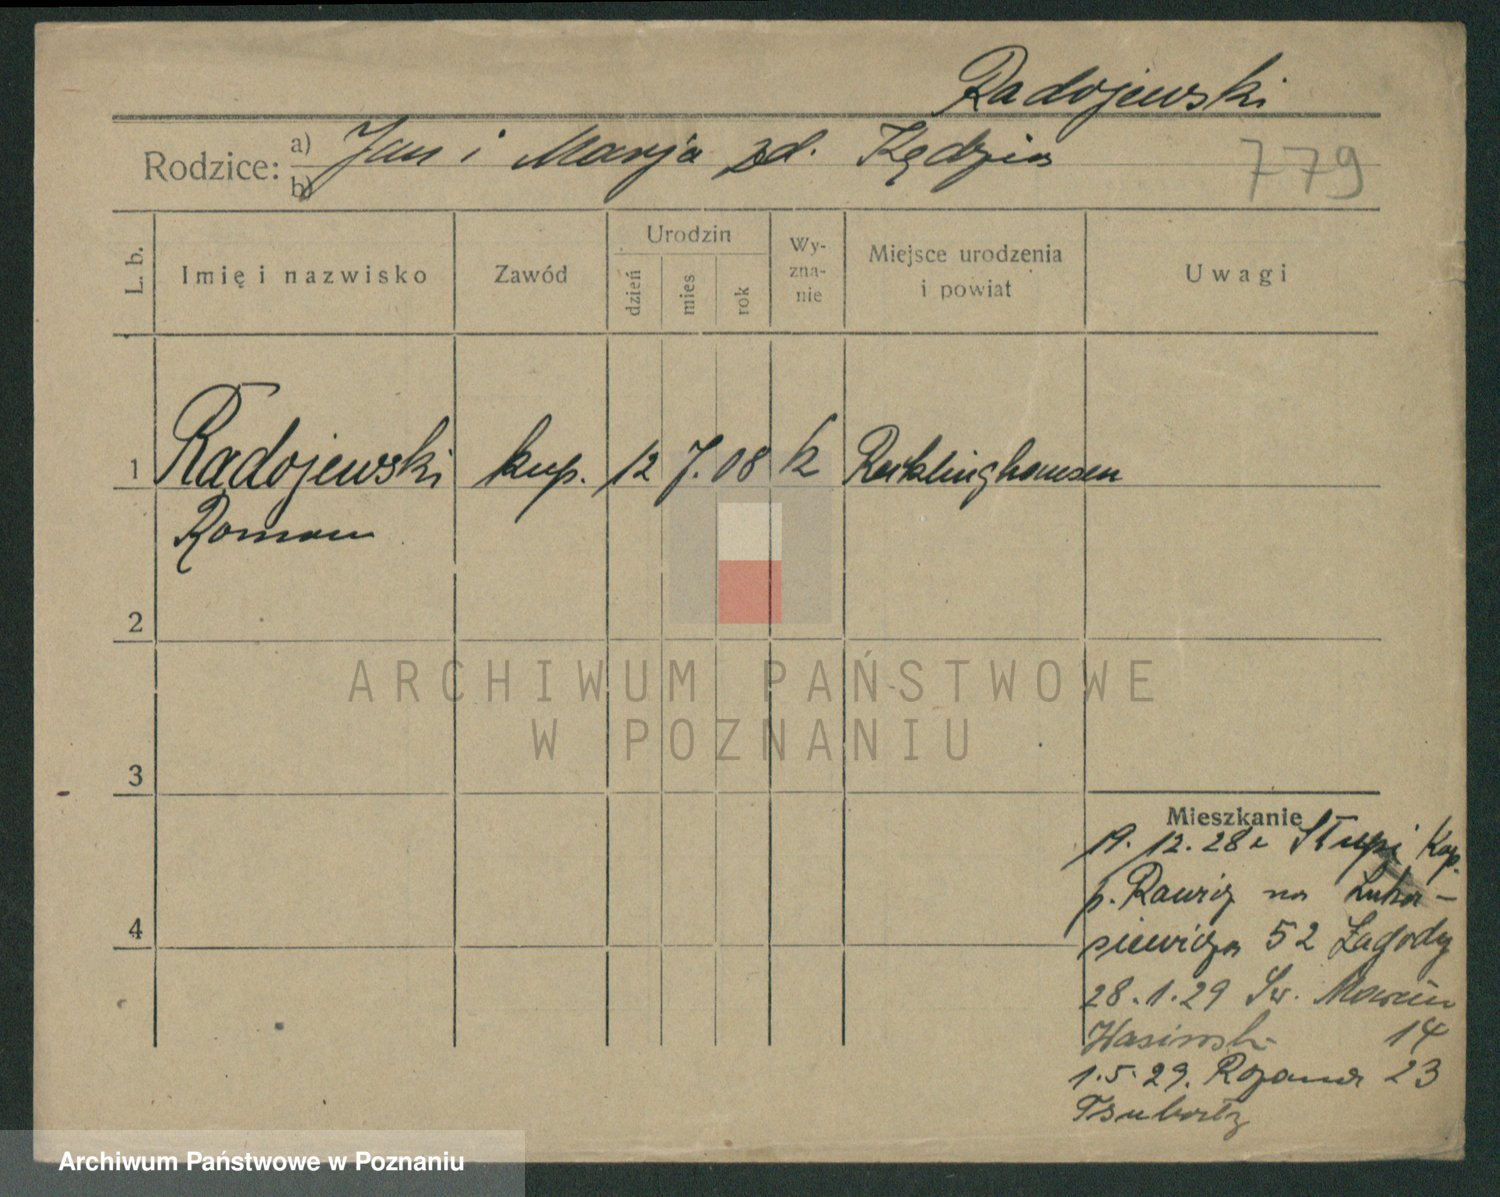 Radojewski
Rodzice: a) Jan i Marja zd. Kędzia
b)
779
L. b.
Imię i nazwisko
Zawód
Urodzin
dzień
mies
rok
Wy-
zna-
nie
Miejsce urodzenia
i powiat
Uwagi
1 Radojewski kup. 12 7. 08 k Recklinghausen
Roman
2
3
4
ARCHIWUM PAŃSTWOWE
W POZNANIU
Mieszkanie
19. 12. 28 z Słupi Kap.
p. Rawicz na Łuka-
siewicza 52 Zagody
28. 1. 29 Św. Marcin
14
1. 5. 29. Różana 23
Archiwum Państwowe w Poznaniu